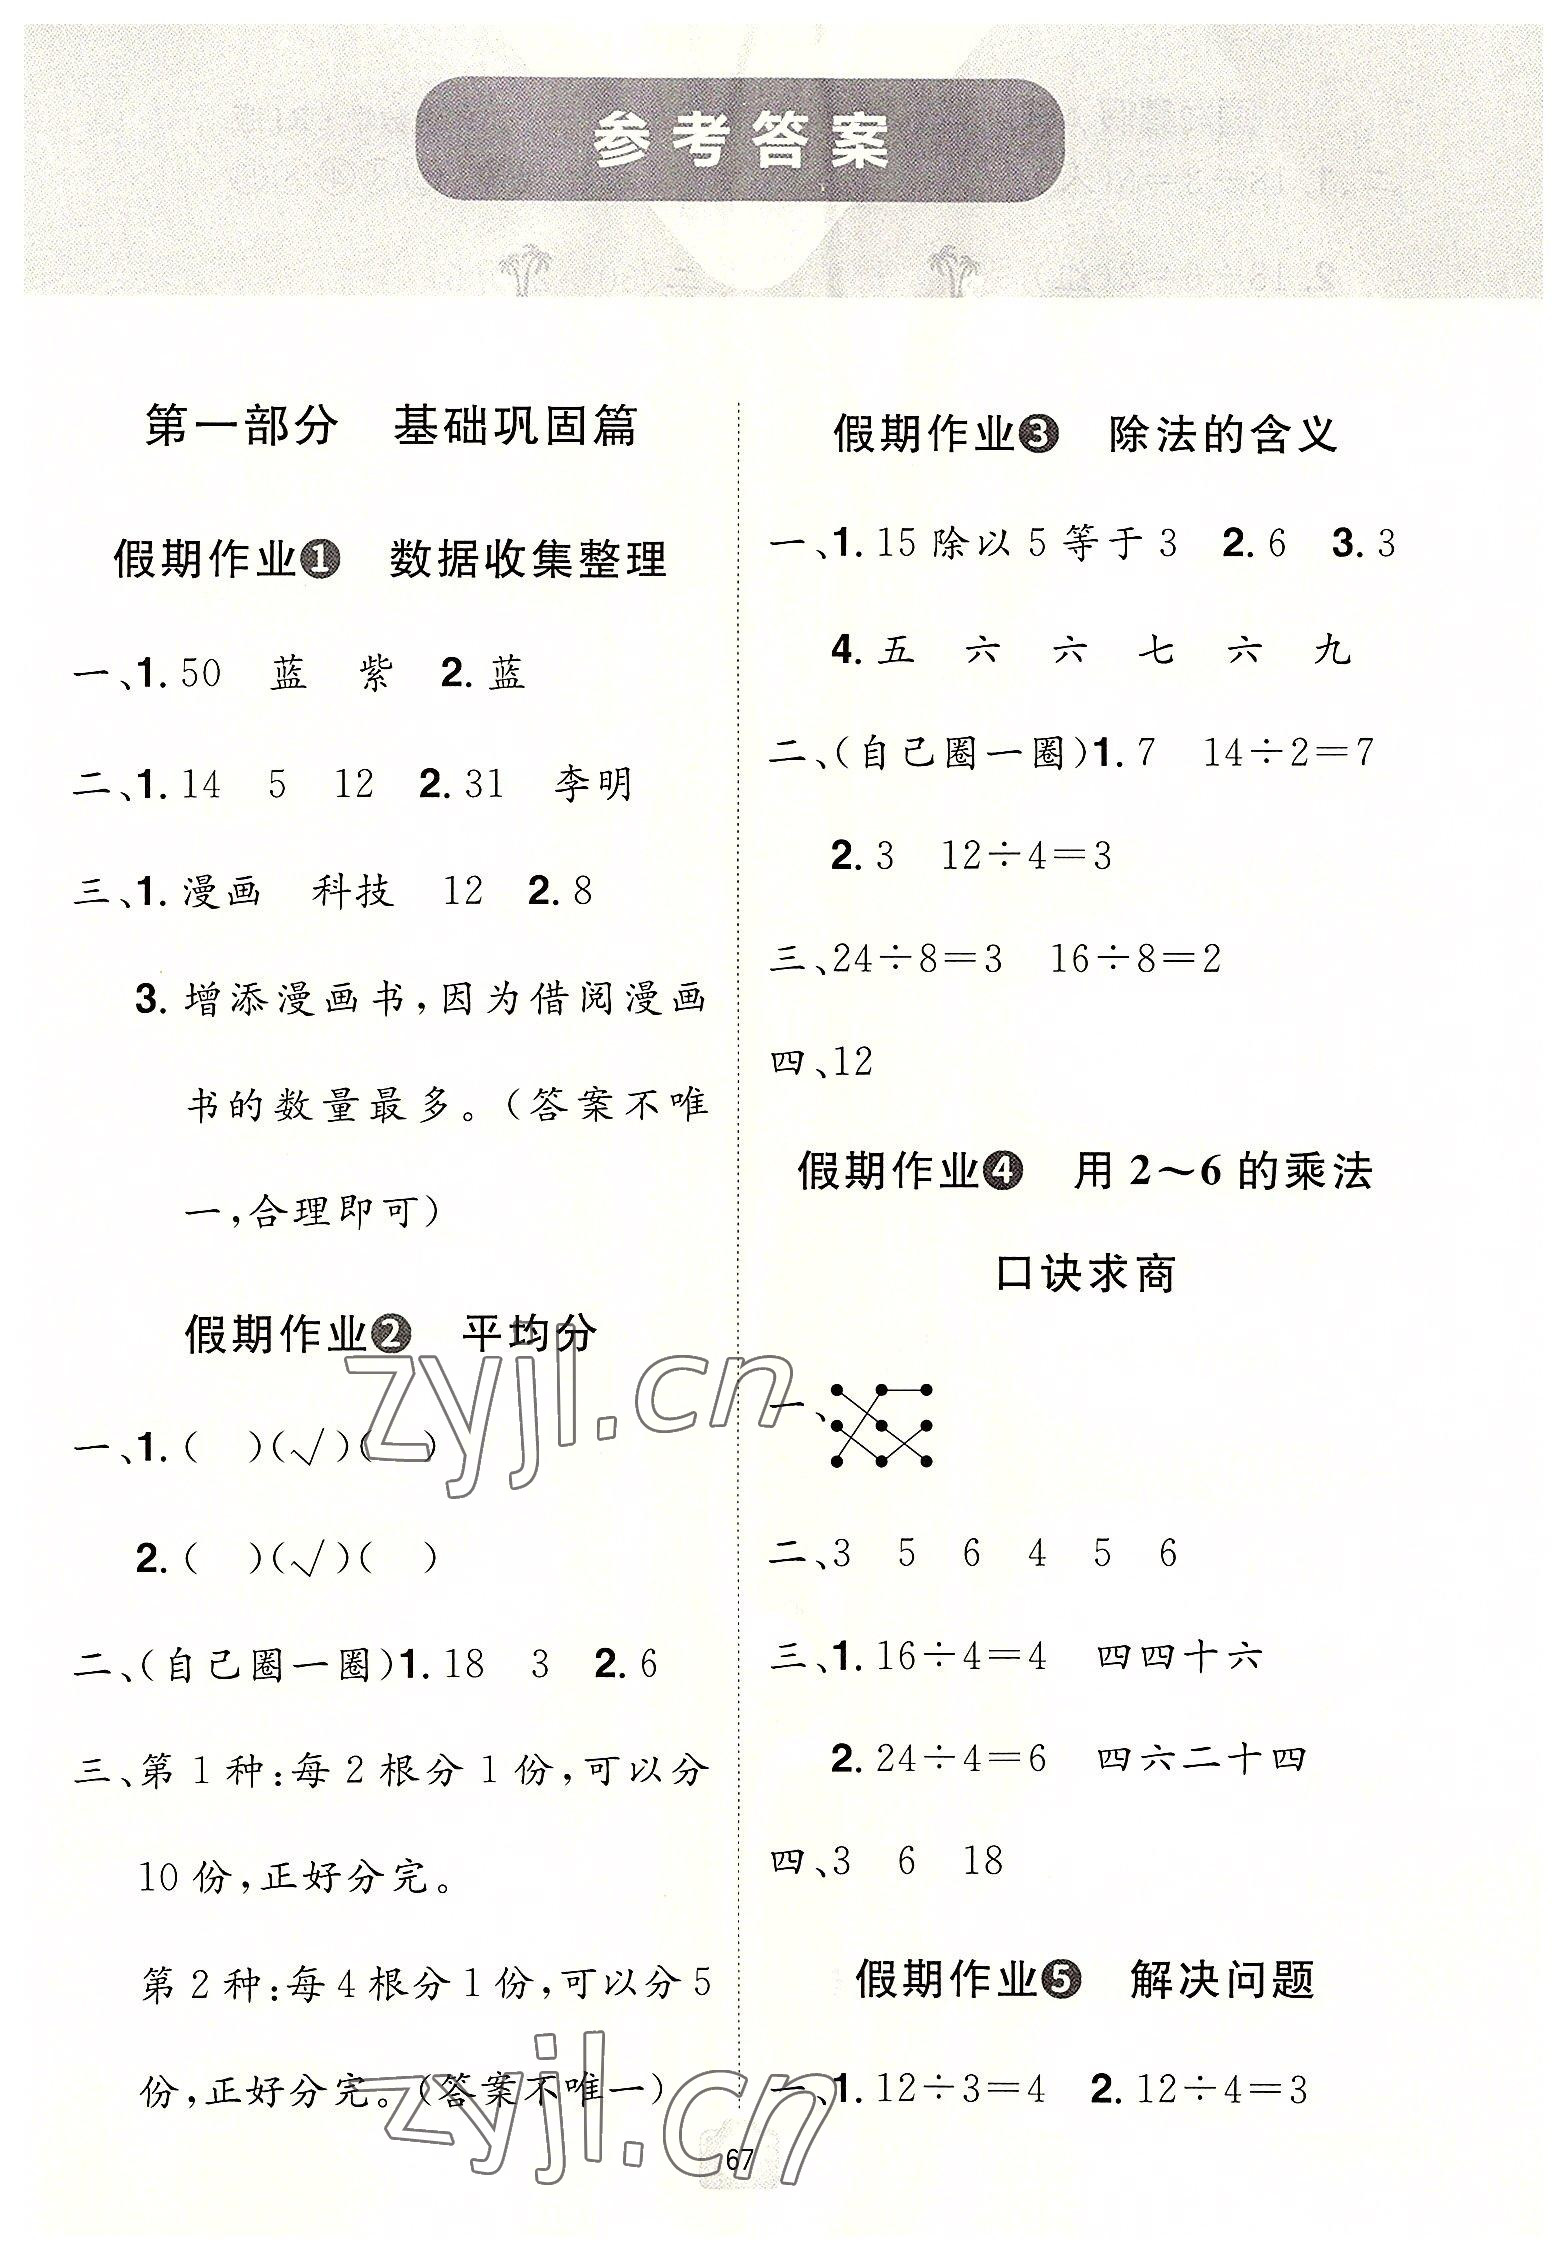 参考答案
第一部分　基础巩固篇
假期作业❶　数据收集整理
一、1. 50　蓝　紫　2. 蓝
二、1. 14　5　12　2. 31　李明
三、1. 漫画　科技　12　2. 8
3. 增添漫画书,因为借阅漫画
书的数量最多。(答案不唯
一,合理即可)
假期作业❷　平均分
一、1. (　)(√)(　)
2. (　)(√)(　)
二、(自己圈一圈)1. 18　3　2. 6
三、第1种:每2根分1份,可以分
10份,正好分完。
第2种:每4根分1份,可以分5
份,正好分完。(答案不唯一)
假期作业❸　除法的含义
一、1. 15除以5等于3　2. 6　3. 3
4. 五　六　六　七　六　九
二、(自己圈一圈)1. 7　14÷2=7
2. 3　12÷4=3
三、24÷8=3　16÷8=2
四、12
假期作业❹　用2～6的乘法
口诀求商
一、
二、3　5　6　4　5　6
三、1. 16÷4=4　四四十六
2. 24÷4=6　四六二十四
四、3　6　18
假期作业❺　解决问题
一、1. 12÷3=4　2. 12÷4=3
67
zyjl.cn
zyjl.cn